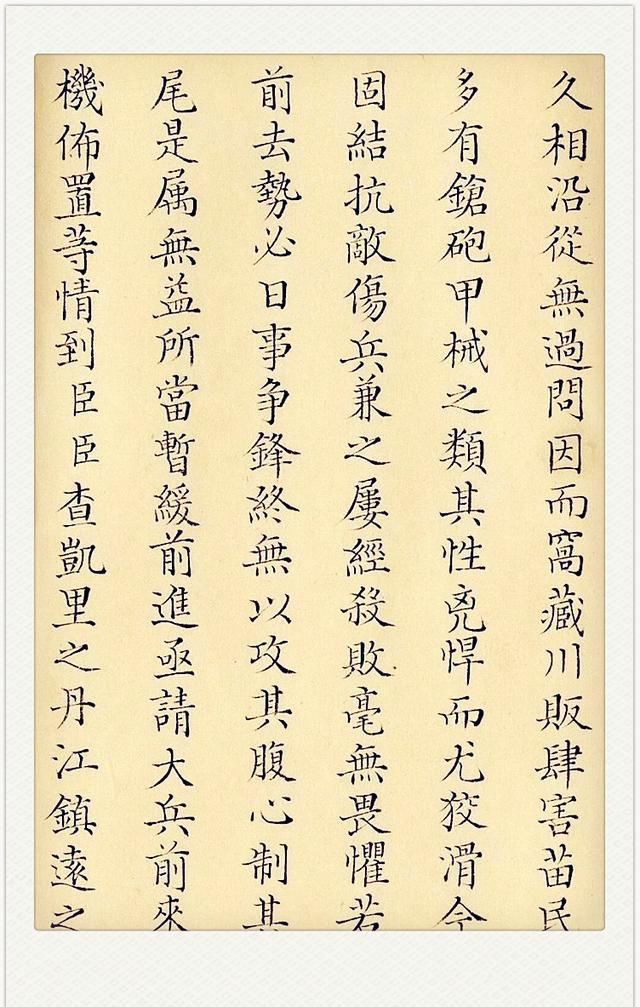 久相沿從無過問因而窩藏川販肆害苗民
多有鎗砲甲械之類其性兇悍而尤狡滑今
固結抗敵傷兵兼之屢經殺敗毫無畏懼若
前去勢必日事争鋒終無以攻其腹心制其
尾是属無益所當暫緩前進亟請大兵前來
機佈置等情到臣臣查凱里之丹江鎮遠之